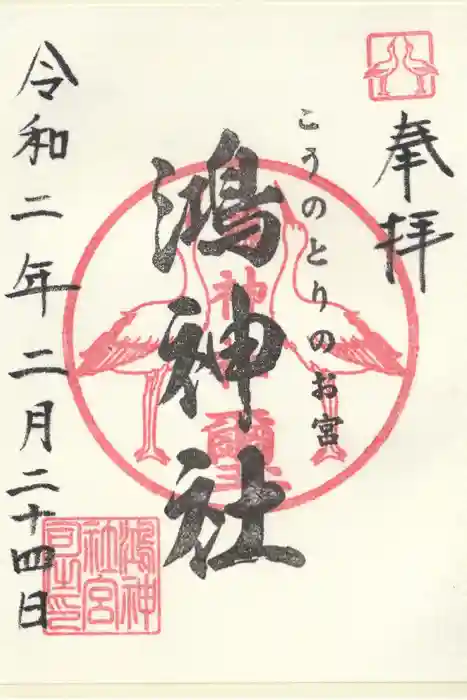 奉拝
こうのとりのお宮
鴻神社
神
璽
令和二年二月二十四日
鴻神
社宮
司之印